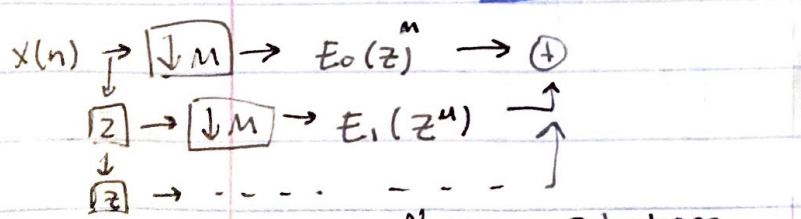 x(n) → ↓M → E₀(z)ᴹ → +
z → ↓M → E₁(zᴹ)
z → - - - . - - -